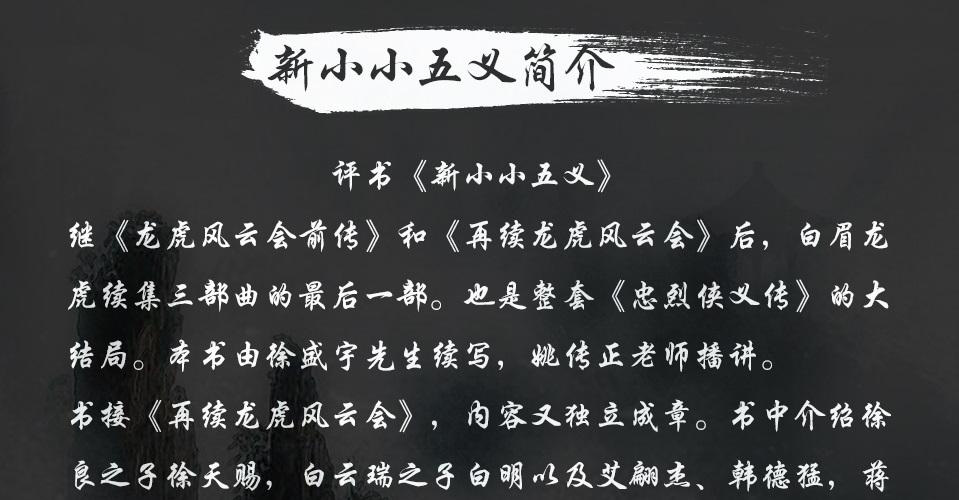 新小小五义简介
评书《新小小五义》
继《龙虎风云会前传》和《再续龙虎风云会》后，白眉龙
虎续集三部曲的最后一部。也是整套《忠烈侠义传》的大
结局。本书由徐盛宇先生续写，姚传正老师播讲。
书接《再续龙虎风云会》，内容又独立成章。书中介绍徐
良之子徐天赐，白云瑞之子白明以及艾翩杰、韩德猛，蒋